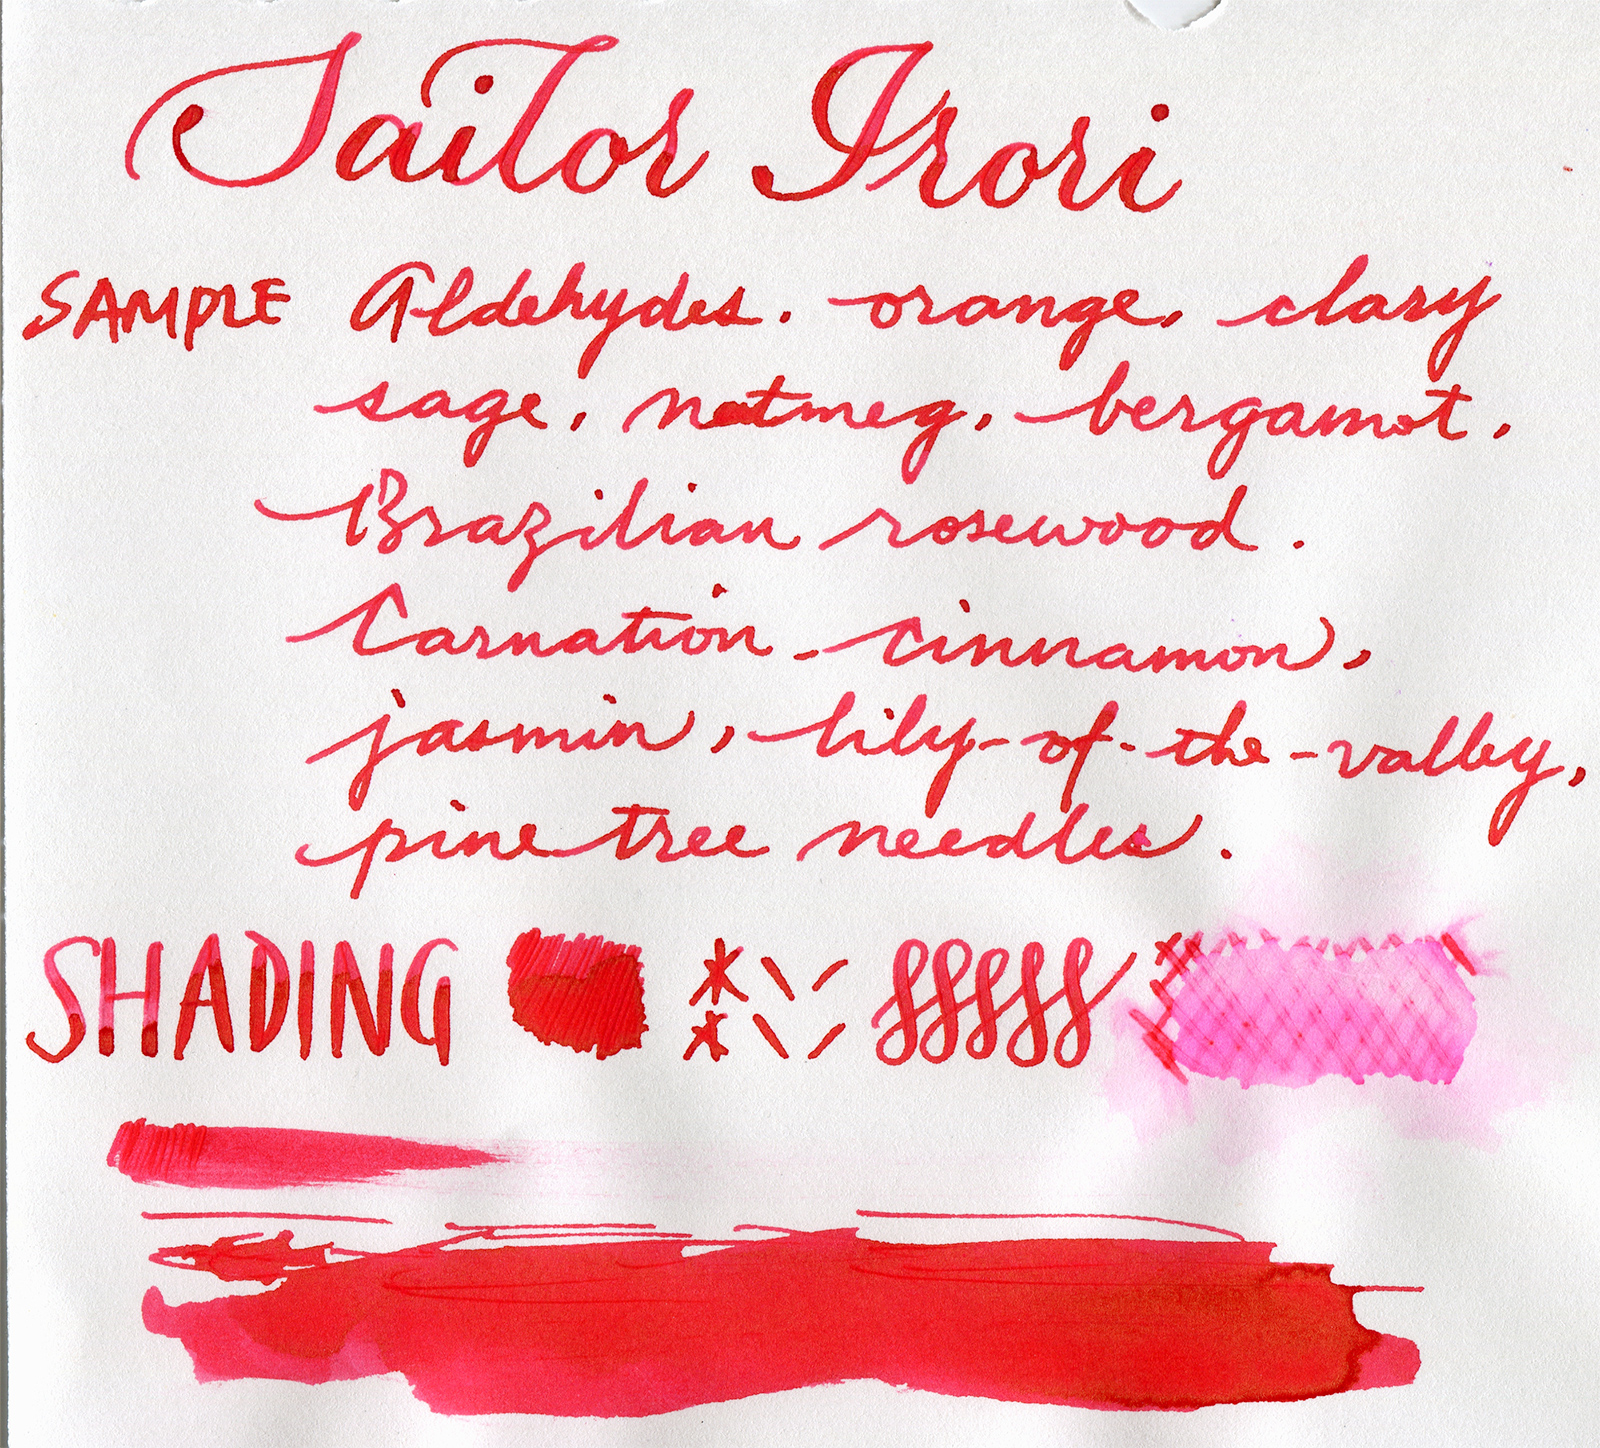 Sailor Irori
SAMPLE Aldehydes. orange, clary
sage, nutmeg, bergamot.
Brazilian rosewood.
Carnation - cinnamon,
jasmin, lily-of-the-valley,
pine tree needles.
SHADING